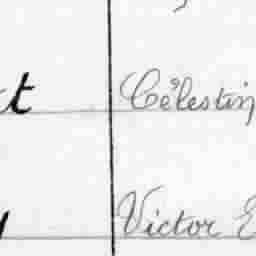 t Célestin
Victor E